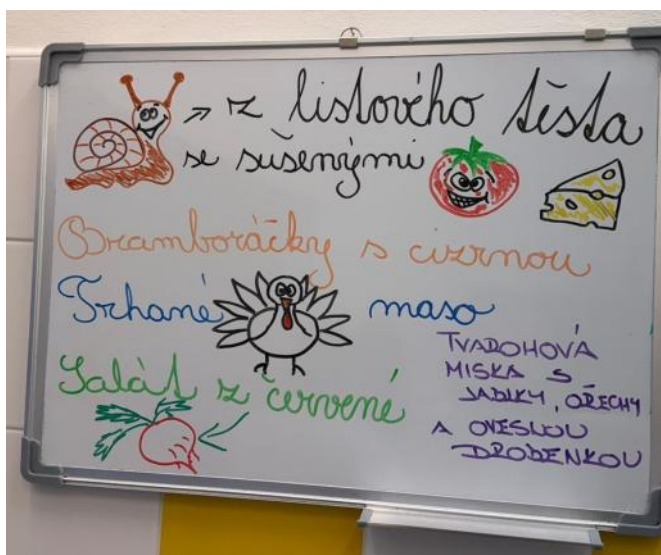 z listového těsta
se sušenými
Bramboráčky s cizrnou
Trhané maso
Salát z červené
TVAROHOVÁ
MISKA S
JABLKY, OŘECHY
A OVESNOU
DROBENKOU